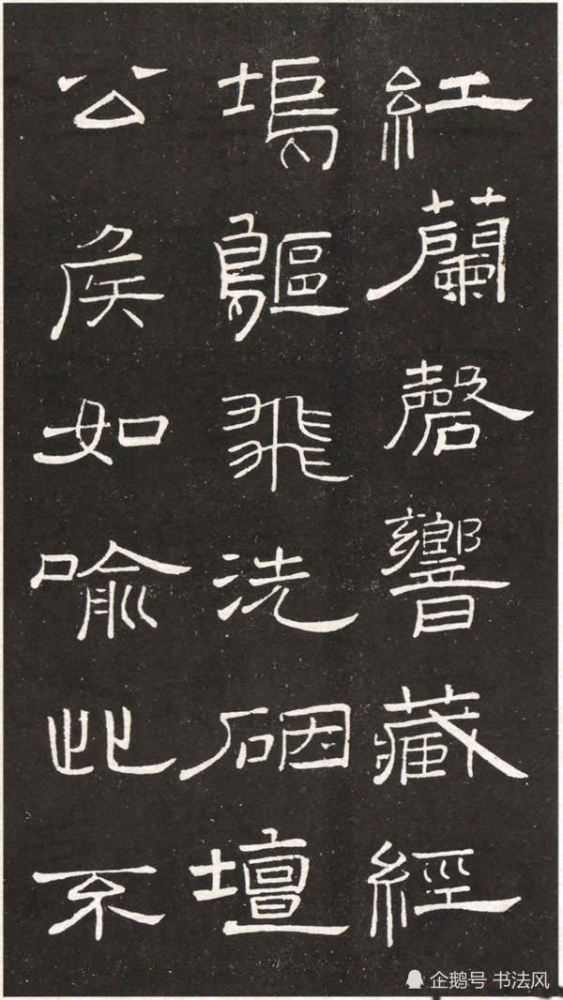 紅蘭磬響藏經
塢鷗飛洗硯壇
公侯如喻此不
企鹅号 书法风